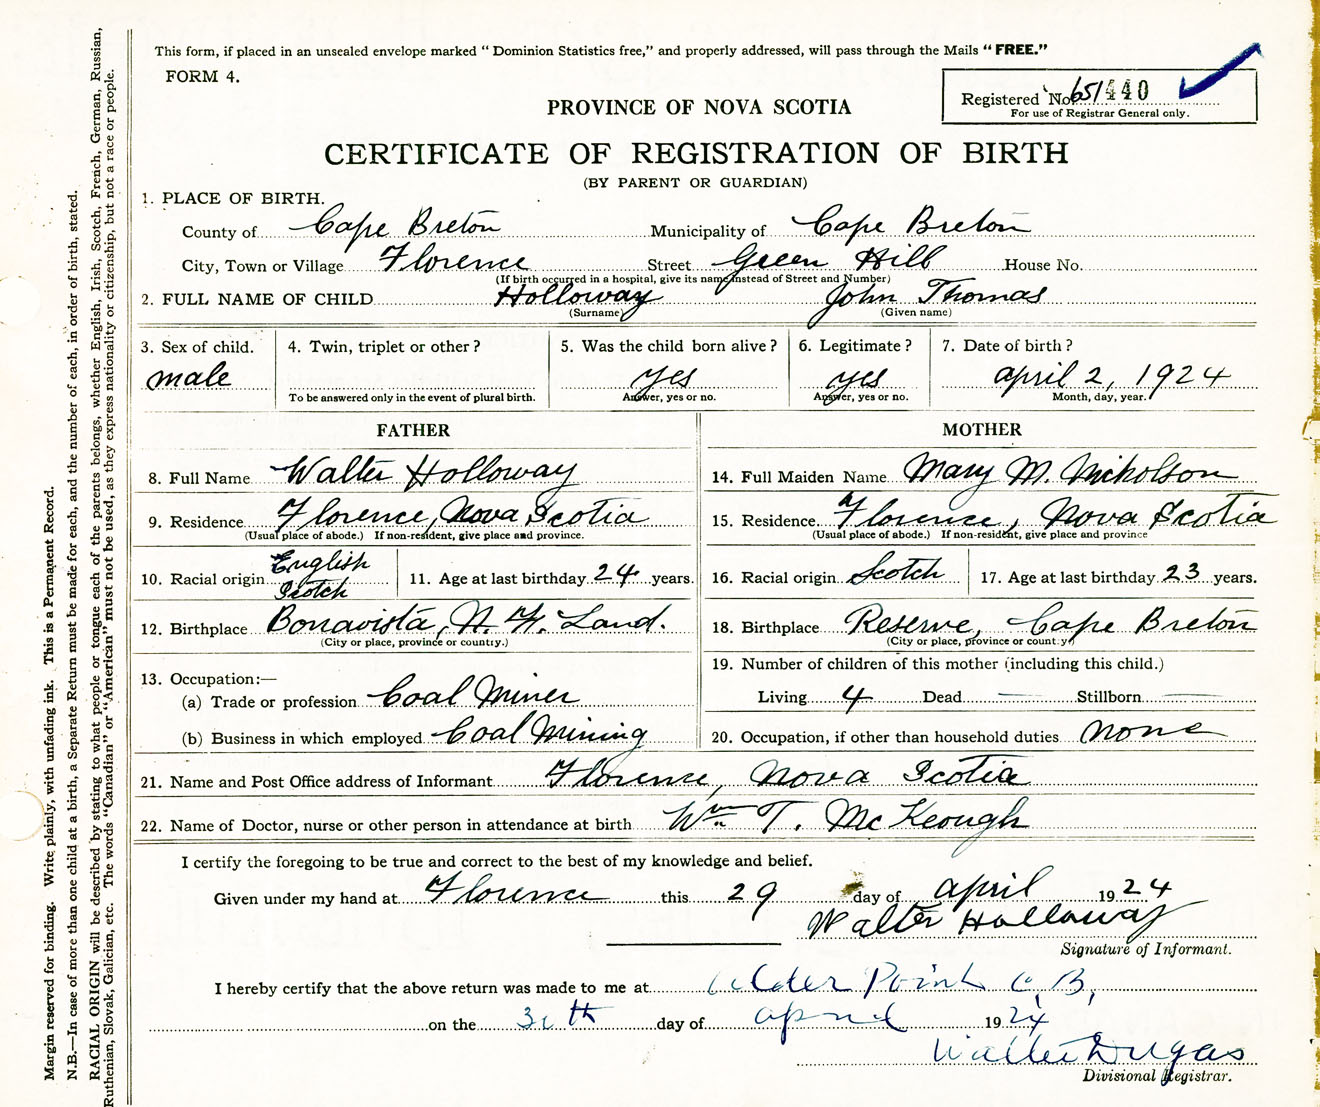 This form, if placed in an unsealed envelope marked "Dominion Statistics free," and properly addressed, will pass through the Mails "FREE."
FORM 4.
Registered No. 651440
For use of Registrar General only.
PROVINCE OF NOVA SCOTIA
CERTIFICATE OF REGISTRATION OF BIRTH
(BY PARENT OR GUARDIAN)
1. PLACE OF BIRTH.
County of Cape Breton Municipality of Cape Breton
City, Town or Village Florence Street Green Hill House No.
(If birth occurred in a hospital, give its name instead of Street and Number)
2. FULL NAME OF CHILD Holloway John Thomas
(Surname) (Given name)
3. Sex of child. 4. Twin, triplet or other? 5. Was the child born alive? 6. Legitimate? 7. Date of birth?
male yes yes april 2, 1924
To be answered only in the event of plural birth. Answer, yes or no. Answer, yes or no. Month, day, year.
FATHER MOTHER
8. Full Name Walter Holloway 14. Full Maiden Name Mary M. Nicholson
9. Residence Florence, Nova Scotia 15. Residence Florence, Nova Scotia
(Usual place of abode.) If non-resident, give place and province. (Usual place of abode.) If non-resident, give place and province
10. Racial origin English Scotch 11. Age at last birthday 24 years. 16. Racial origin Scotch 17. Age at last birthday 23 years.
12. Birthplace Bonavista, N. F. Land. 18. Birthplace Reserve, Cape Breton
(City or place, province or country.) (City or place, province or country)
13. Occupation:— 19. Number of children of this mother (including this child.)
(a) Trade or profession Coal Miner Living 4 Dead — Stillborn —
(b) Business in which employed Coal Mining 20. Occupation, if other than household duties none
21. Name and Post Office address of Informant Florence, Nova Scotia
22. Name of Doctor, nurse or other person in attendance at birth Wm T. McKeough
I certify the foregoing to be true and correct to the best of my knowledge and belief.
Given under my hand at Florence this 29 day of april 1924
Walter Holloway
Signature of Informant.
I hereby certify that the above return was made to me at Alder Point C B,
on the 30th day of april 1924
Walter Dugas
Divisional Registrar.
Margin reserved for binding. Write plainly, with unfading ink. This is a Permanent Record.
N.B.—In case of more than one child at a birth, a Separate Return must be made for each, and the number of each, in order of birth, stated.
RACIAL ORIGIN will be described by stating to what people or tongue each of the parents belongs, whether English, Irish, Scotch, French, German, Russian,
Ruthenian, Slovak, Galician, etc. The words "Canadian" or "American" must not be used, as they express nationality or citizenship, but not a race or people.